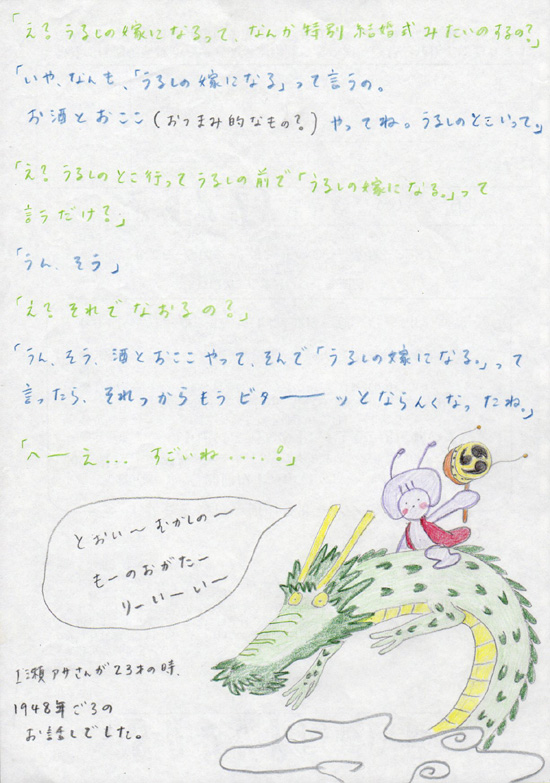 「え？うるしの嫁になるって、なんか特別結婚式みたいのするの？」
「いや、なんも、「うるしの嫁になる」って言うの。
お酒とおここ(おつまみ的なもの？)やってね。うるしのとこいって。」
「え？うるしのとこ行ってうるしの前で「うるしの嫁になる。」って
言うだけ？」
「うん、そう」
「え？それでなおるの？」
「うん、そう、酒とおここやって、そんで「うるしの嫁になる。」って
言ったら、それっからもうピターーッとならんくなったね。」
「へーえ... すごいね....！」
とおい〜むかしの〜
もーのおがたー
りーいーい〜
瀬アサさんが23才の時、
1948年ごろの
お話しでした。